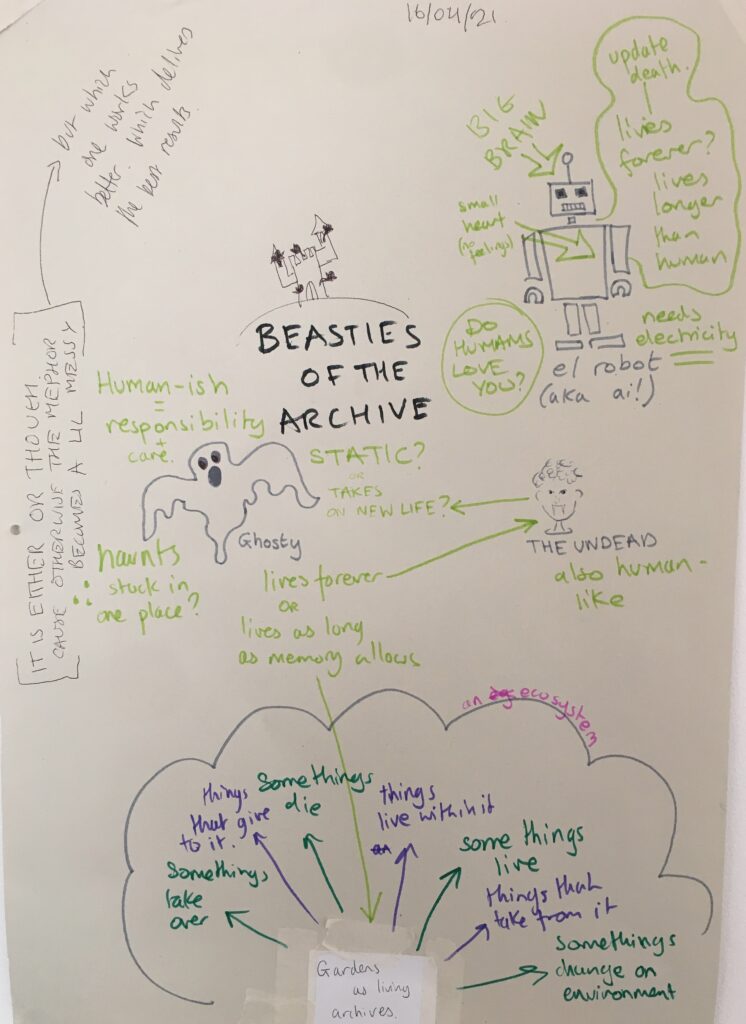 16/04/21
but which
one works
better. which delives
the best results.
[IT IS EITHER OR THOUGH
CAUSE OTHERWISE THE MEPHOR
BECOMES A LIL MESSY]
BIG
BRAIN
small
heart
(no
feelings)
update
death.
lives
forever?
lives
longer
than
human
needs
electricity
DO
HUMANS
LOVE
YOU?
el robot
(aka ai!)
BEASTIES
OF THE
ARCHIVE
Human-ish
=
responsibility
+
care.
STATIC?
OR
TAKES
ON NEW LIFE?
Ghosty
THE UNDEAD
also human-
like
haunts
stuck in
one place?
lives forever
OR
lives as long
as memory allows
an ecosystem
things
that give
to it.
Somethings
die
things
live within it
some things
live
Somethings
take
over
things that
take from it
Somethings
change on
environment
Gardens
as living
archives.